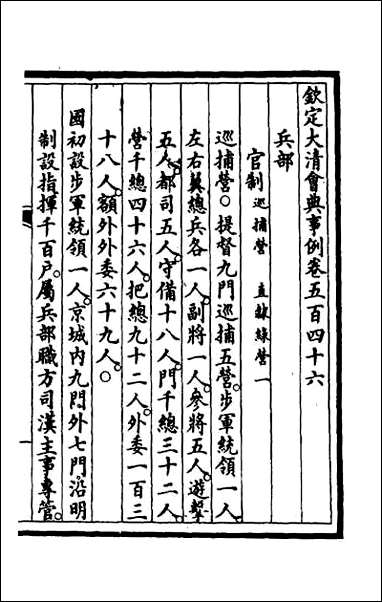 欽定大清會典事例卷五百四十六
兵部
官制 巡捕營 直隸綠營一
巡捕營○提督九門巡捕五營步軍統領一人。
左右翼總兵各一人。副將一人。參將五人。遊擊
五人。都司五人。守備十八人。門千總三十二人。
營千總四十六人。把總九十二人。外委一百三
十八人。額外外委六十九人。○
國初設步軍統領一人。京城內九門外七門。沿明
制設指揮千百戶。屬兵部職方司漢主事專管。